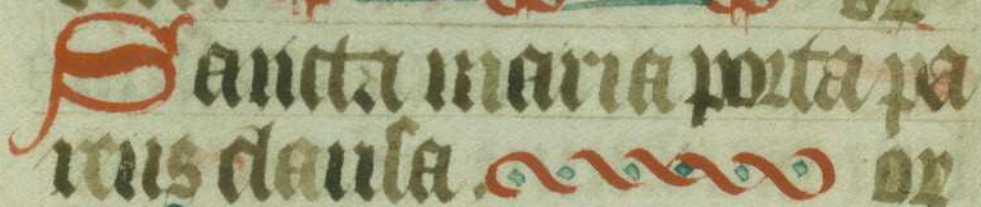 Sancta maria porta pa
clausa. or